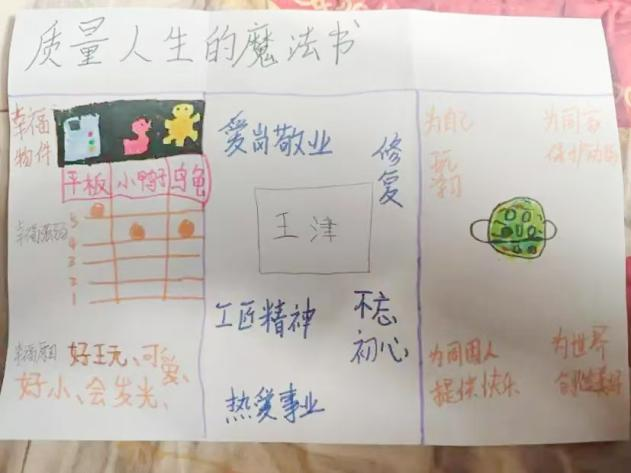 质量人生的魔法书
幸福
物件
平板
小鸭子
乌龟
5
4
3
2
1
好王元、可爱、
好小、会发光、
爱岗敬业
修
复
王津
工匠精神
不忘
初心
热爱事业
为自己
为国家
保护动物
为同国人
提供快乐
为世界